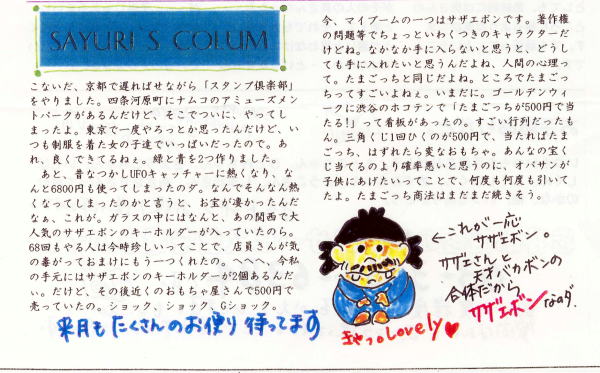 SAYURI'S COLUM
こないだ、京都で遅ればせながら「スタンプ倶楽部」
をやりました。四条河原町にナムコのアミューズメン
トパークがあるんだけど、そこでついに、やってし
まったよ。東京で一度やろっとか思ったんだけど、い
つも制服を着た女の子達でいっぱいだったので。あ
れ、良くできてるねぇ。緑と青を2つ作りました。
あと、昔なつかしUFOキャッチャーに熱くなり、な
んと6800円も使ってしまったのダ。なんでそんなん熱
くなってしまったのかと言うと、お宝が凄かったんだ
なぁ、これが。ガラスの中にはなんと、あの関西で大
人気のサザエボンのキーホルダーが入っていたのら。
68回もやる人は今時珍しいってことで、店員さんが気
の毒がっておまけにもう一つくれたの。へへへ、今私
の手元にはサザエボンのキーホルダーが2個あるんだ
ぃ。だけど、その後近くのおもちゃ屋さんで500円で
売っていたの。ショック、ショック、Gショック。
来月もたくさんのお便り待ってます
今、マイブームの一つはサザエボンです。著作権
の問題等でちょっといわくつきのキャラクターだ
けどね。なかなか手に入らないと思うと、どうし
ても手に入れたいと思うんだよね、人間の心理っ
て。たまごっちと同じだよね。ところでたまごっ
ちってすごいよねぇ。いまだに。ゴールデンウィ
ークに渋谷のホコテンで「たまごっちが500円で当
たる!」って看板があったの。すごい行列だったも
ん。三角くじ1回ひくのが500円で、当たればたま
ごっち、はずれたら変なおもちゃ。あんなの宝く
じ当てるのより確率悪いと思うのに、オバサンが
子供にあげたいってことで、何度も何度も引いて
たよ。たまごっち商法はまだまだ続きそう。
←これが一応
サザエボン。
サザエさんと
天才バカボンの
合体だから
サザエボンなのダ.
きゃっ。Lovely♥